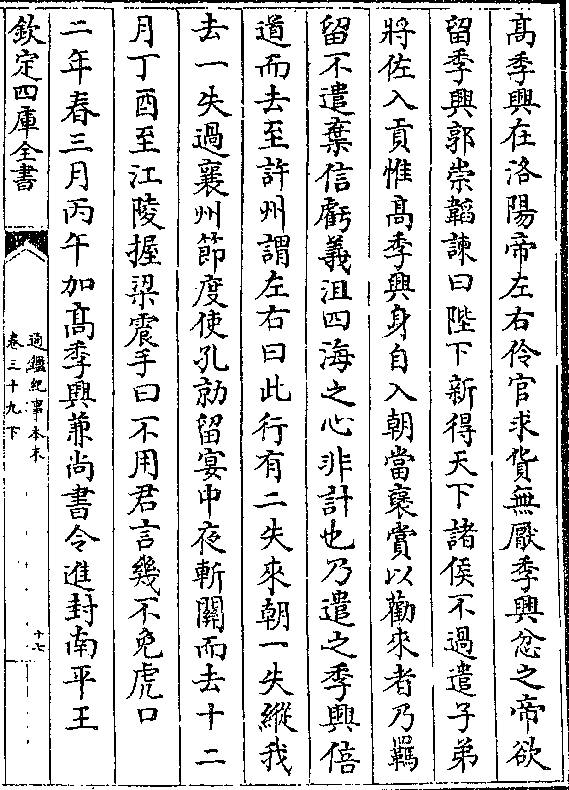 高季興在洛陽帝左右伶官求貨無厭季興忿之帝欲
留季興郭崇韜諫曰陛下新得天下諸侯不過遣子弟
將佐入貢惟高季興身自入朝當襃賞以勸來者乃羈
留不遣棄信虧義沮四海之心非計也乃遣之季興倍
道而去至許州謂左右曰此行有二失來朝一失縱我
去一失過襄州節度使孔勍留宴中夜斬關而去十二
月丁酉至江陵握梁震手曰不用君言幾不免虎口
二年春三月丙午加高季興兼尚書令進封南平王
欽定四庫全書
通鑑紀事本末
卷三十九下
十七